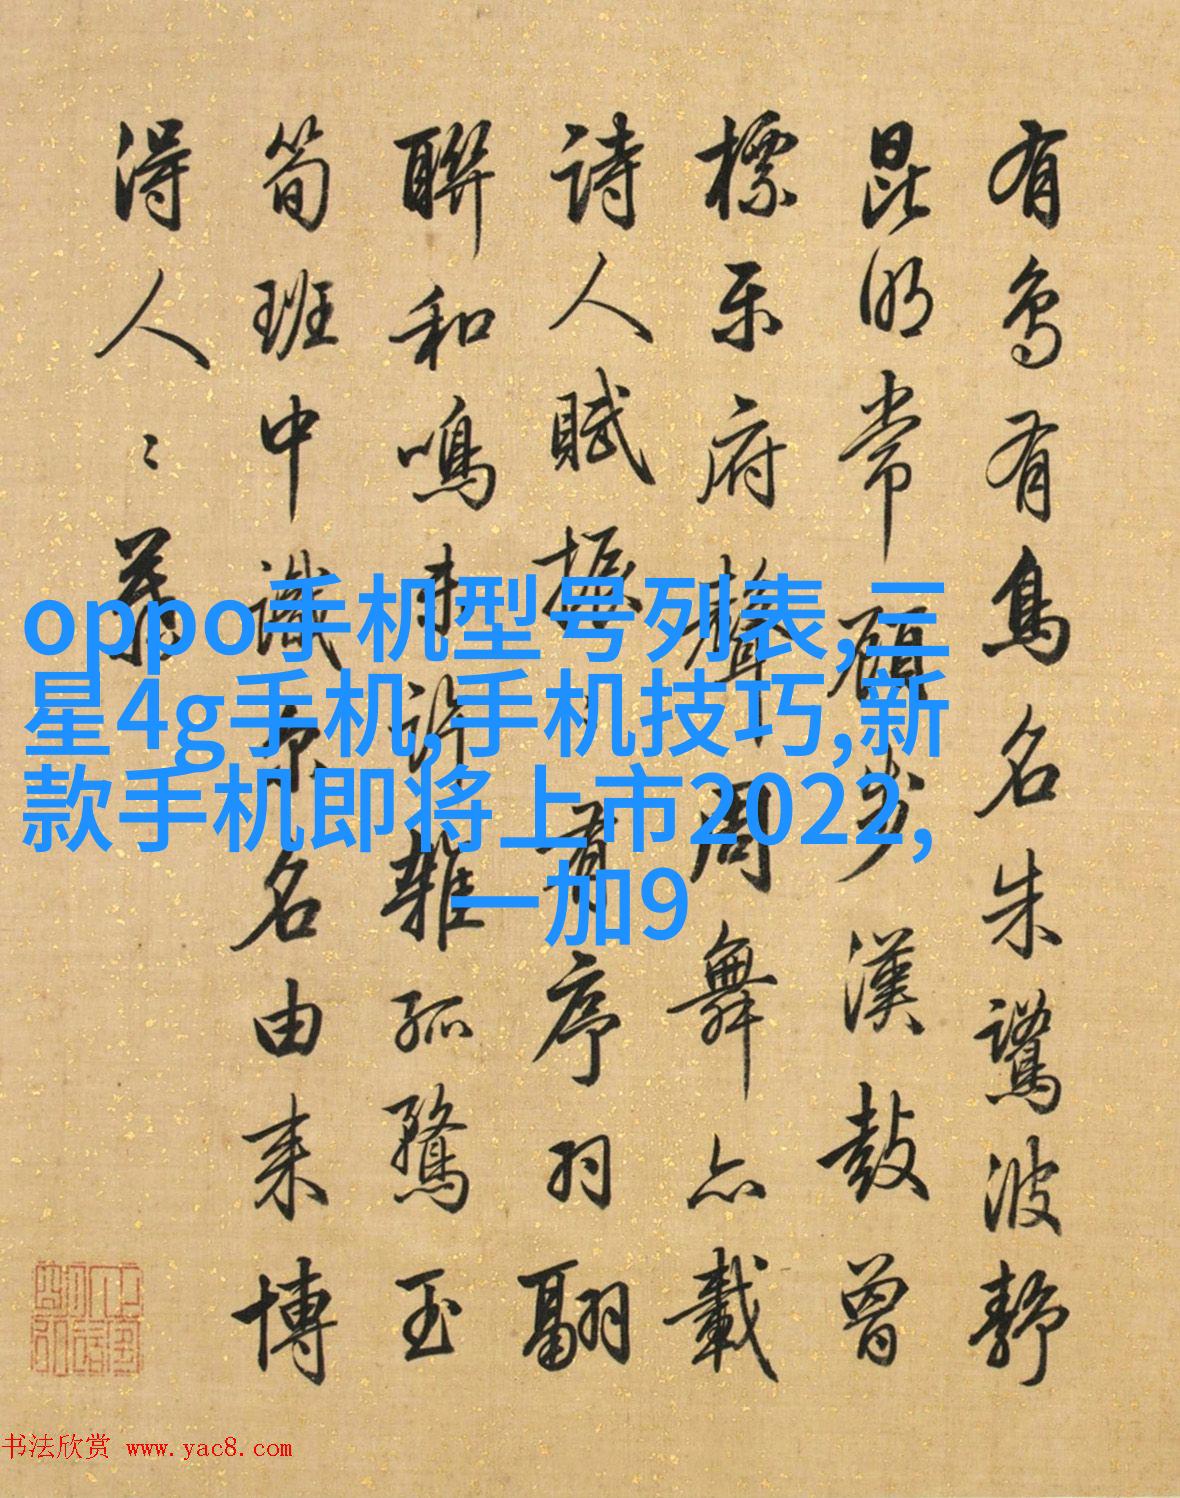 有鳥有鳥名朱鷺波靜
昆明常顧步漢鼓曾
標乐府聲周舞亦載
詩人賦振〻有序羽翮
聯和鳴未許雜孤鶩玉
筍班中識京名由来博
得人〻羨
oppo手机型号列表,三
星4g手机,手机技巧,新
款手机即将上市2022,
一加9
书法欣赏 www.yac8.com